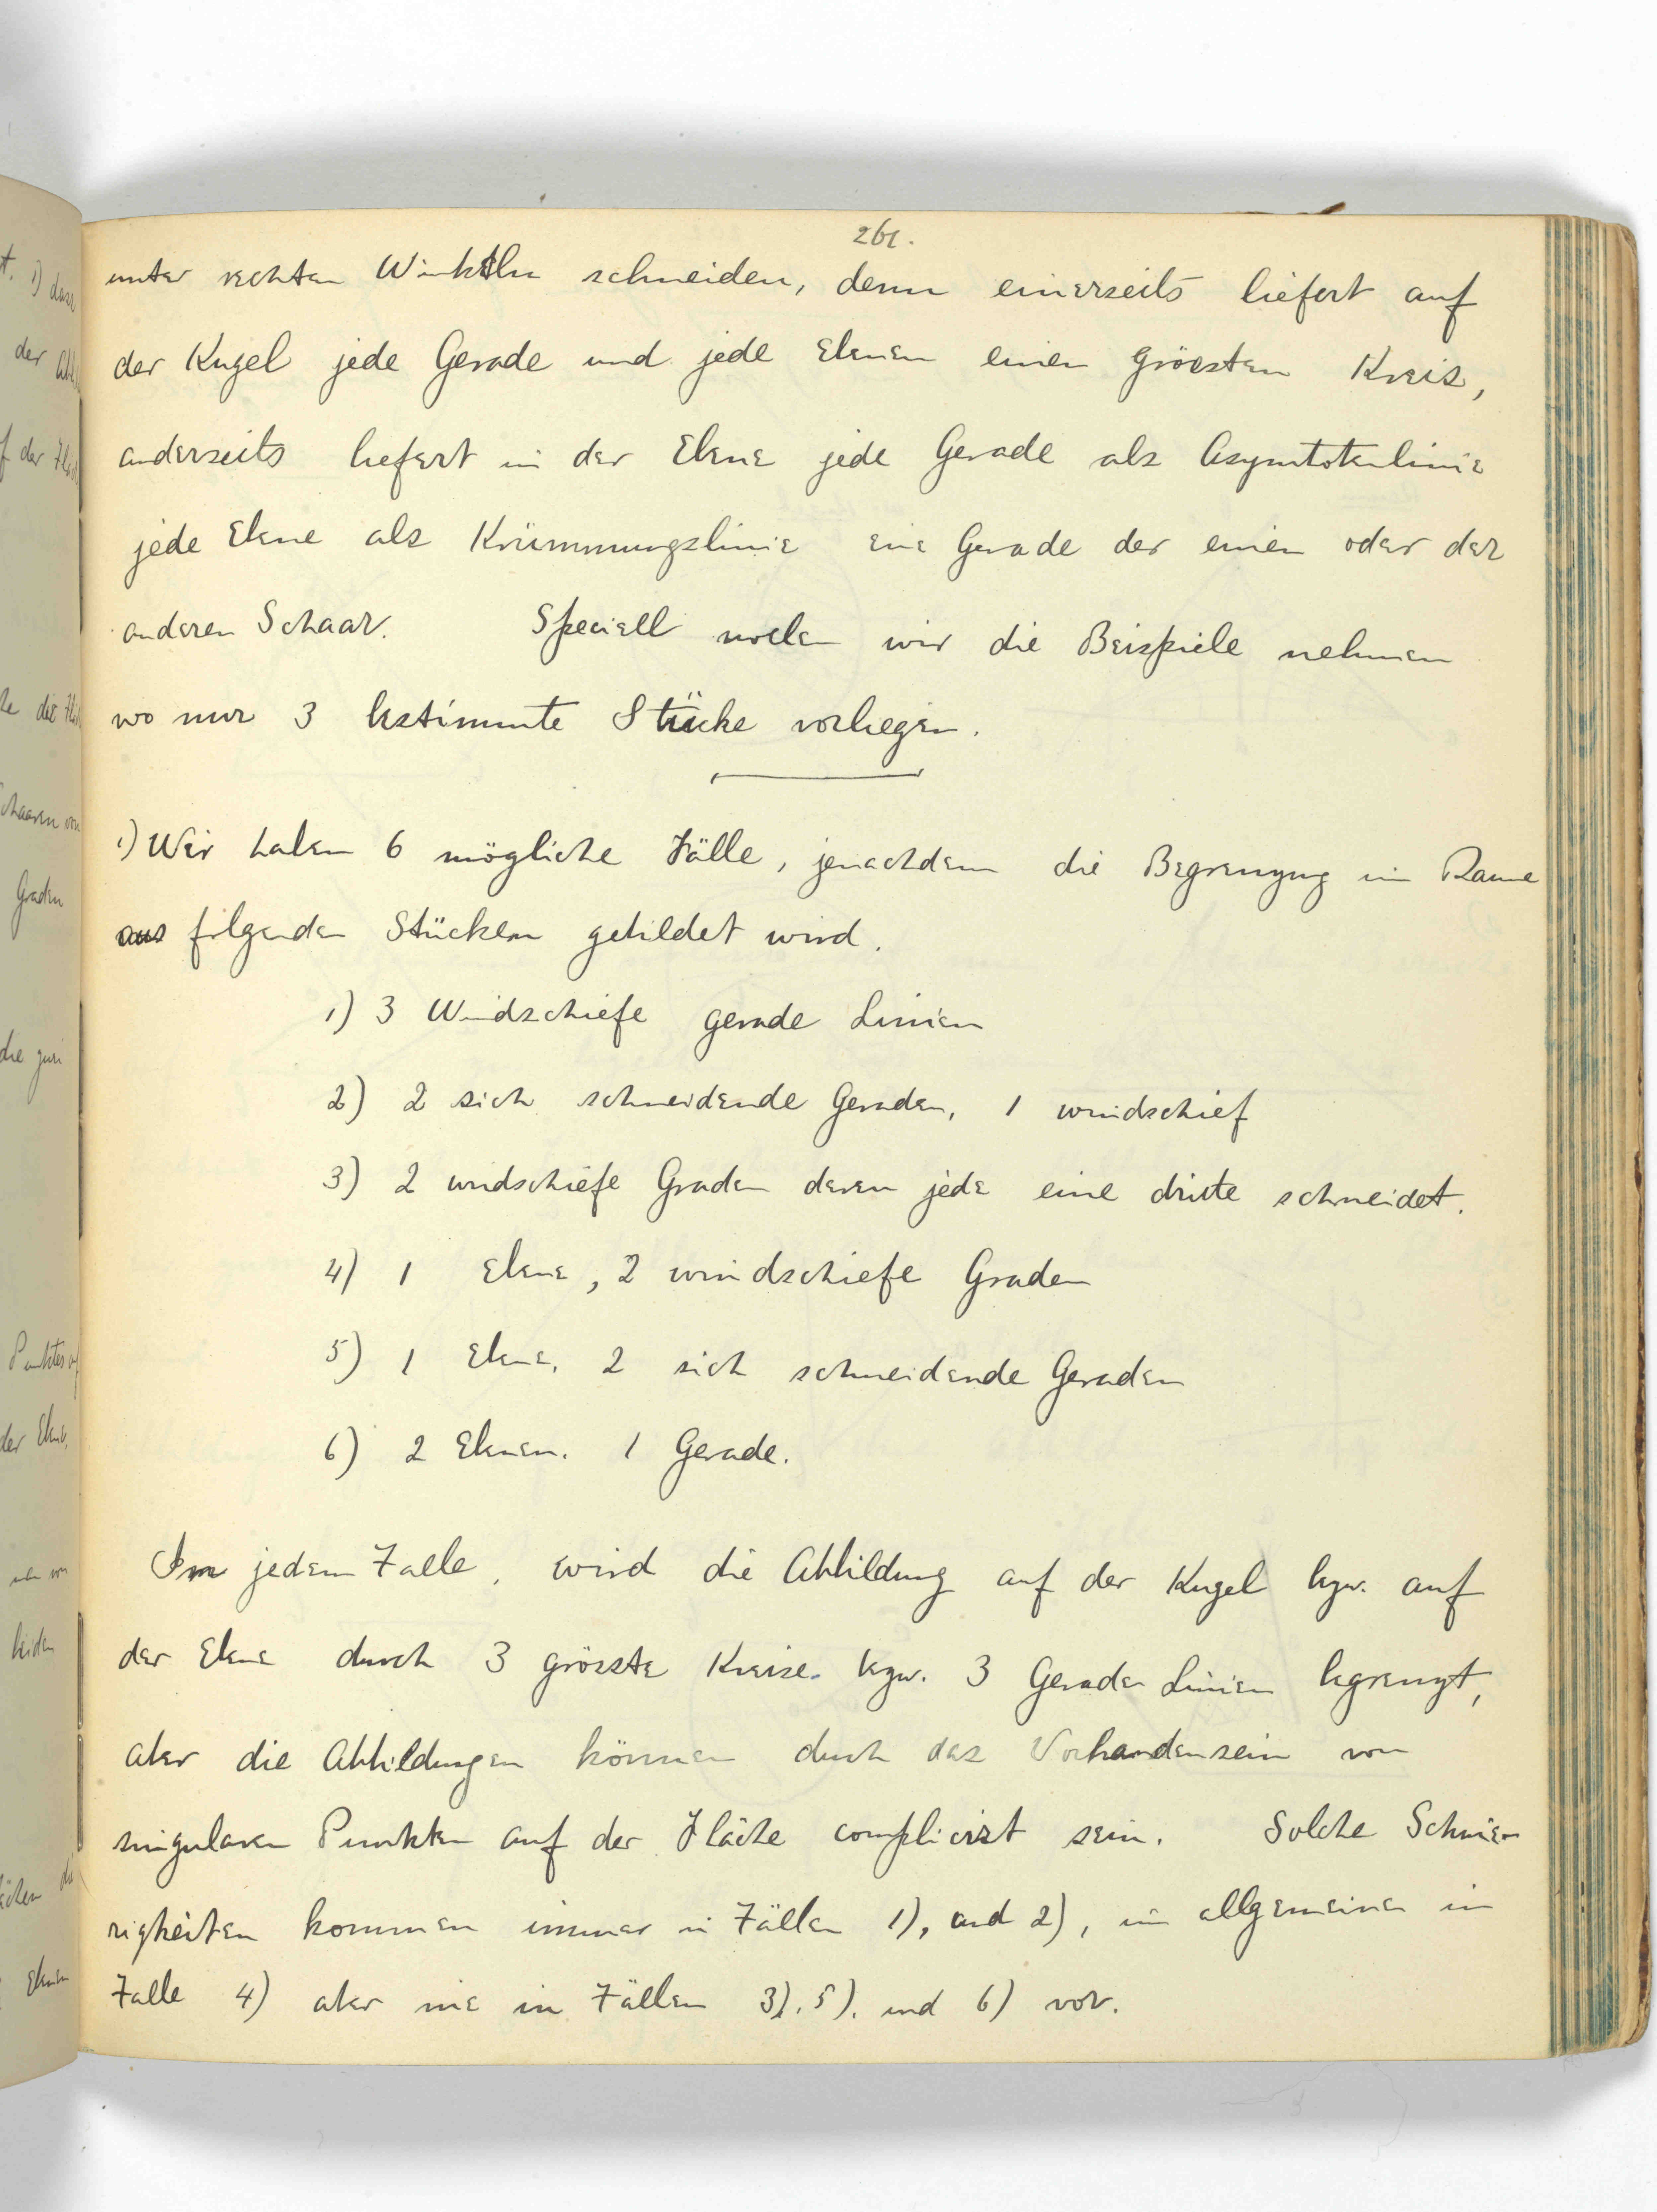 261.
unter rechten Winkeln schneiden, denn einerseits liefert auf
der Kugel jede Gerade und jede Ebenen einen grössten Kreis,
anderseits liefert in der Ebene jede Gerade als Asymtotenlinie
jede Ebene als Krümmungslinie eine Gerade der einen oder der
anderen Schaar. Speciell wollen wir die Beispiele nehmen
wo nur 3 bestimmte Stücke vorliegen.
1) Wir haben 6 mögliche Fälle, jenachdem die Begrenzung im Raume
aus folgenden Stücken gebildet wird.
1) 3 Windschiefe gerade Linien
2) 2 sich schneidende Geraden, 1 windschief
3) 2 windschiefe Graden deren jede eine dritte schneidet.
4) 1 Ebene, 2 windschiefe Graden
5) 1 Ebene. 2 sich schneidende Geraden
6) 2 Ebenen. 1 Gerade.
Im jedem Falle, wird die Abbildung auf der Kugel bzw. auf
der Ebene durch 3 grösste Kreise bzw. 3 Gerade Linien begrenzt,
aber die Abbildungen können durch das Vorhandensein von
singularen Punkten auf der Fläche complicirt sein. Solche Schwie-
rigkeiten kommen immer in Fällen 1), und 2), im allgemeinen in
Falle 4) aber nie in Fällen 3). 5). und 6) vor.